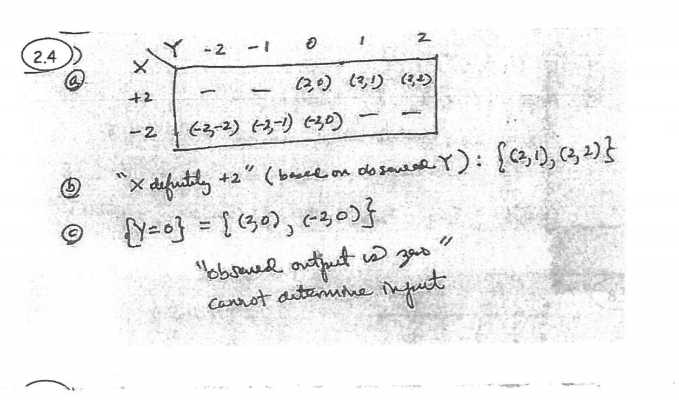 2.4)
Y -2 -1 0 1 2
X
(a)
+2 — — (2,0) (2,1) (2,2)
-2 (-2,-2) (-2,-1) (-2,0) — —
(b) "X definitely +2" (based on observed Y): {(2,1), (2,2)}
(c) {Y=0} = {(2,0), (-2,0)}
"observed output is zero"
cannot determine input